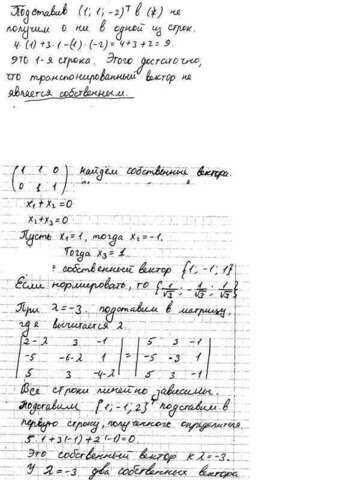 Подставив (1; 1; -2)ᵀ в (*) не
получим 0 ни в одной из строк.
4·(1)+3·1-(1)·(-2)=4+3+2=9.
Это 1-я строка. Этого достаточно,
что транспонированный вектор не
является собственным.
(1 1 0) найдём собственные вектора.
(0 1 1)
x₁+x₂=0
x₂+x₃=0
Пусть x₁=1, тогда x₂=-1.
Тогда x₃=1
собственный вектор {1, -1, 1}
Если нормировать, то {1/√3; -1/√3; 1/√3}
При λ=-3 подставим в матрицу,
где вычитается λ.
|2-λ 3 -1| |5 3 -1|
|-5 -6-λ 1| = |-5 -3 1|
|5 3 -4-λ| |5 3 -1|
Все строки линейно зависимы.
Подставим {1; -1; 2}ᵀ подставим в
первую строку, полученного определителя.
5·1+3(-1)+2(-1)=0.
Это собственный вектор к λ=-3.
У λ=-3 два собственных вектора